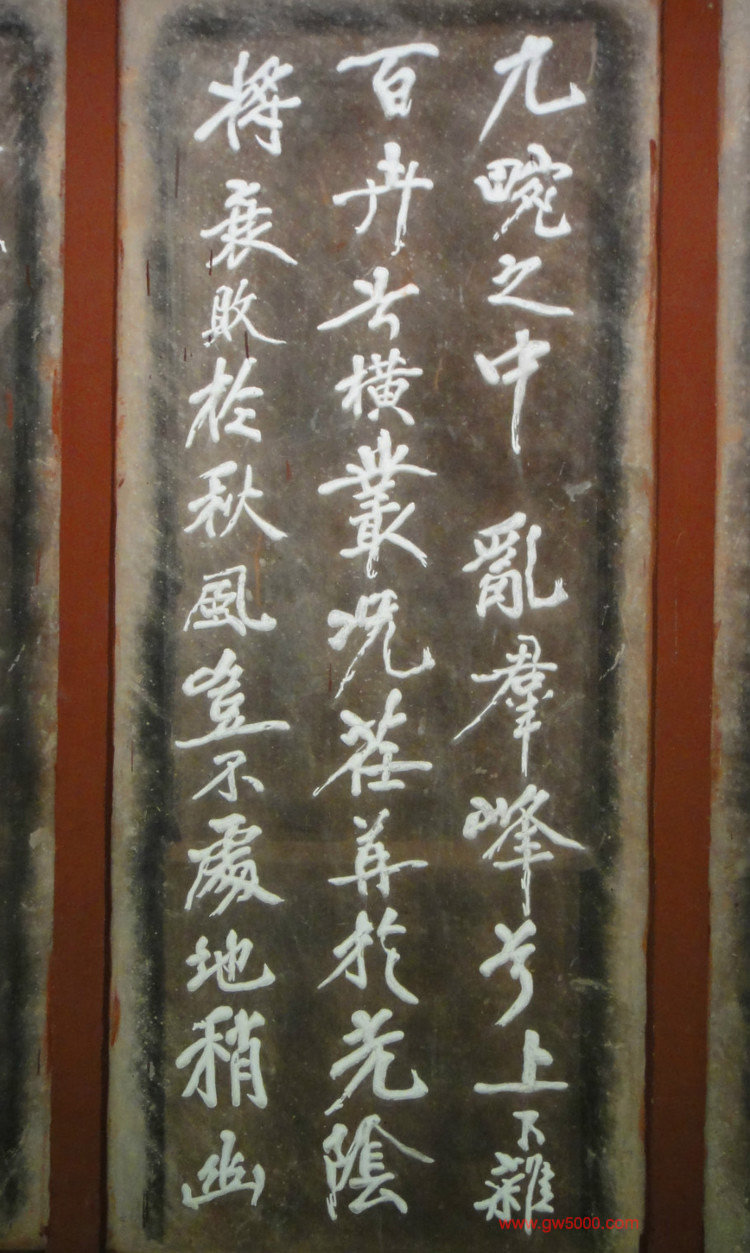 九畹之中亂羣峰兮上下雜
百卉兮橫叢况荏苒於光陰
將衰敗於秋風豈不處地稍幽
www.gw5000.com